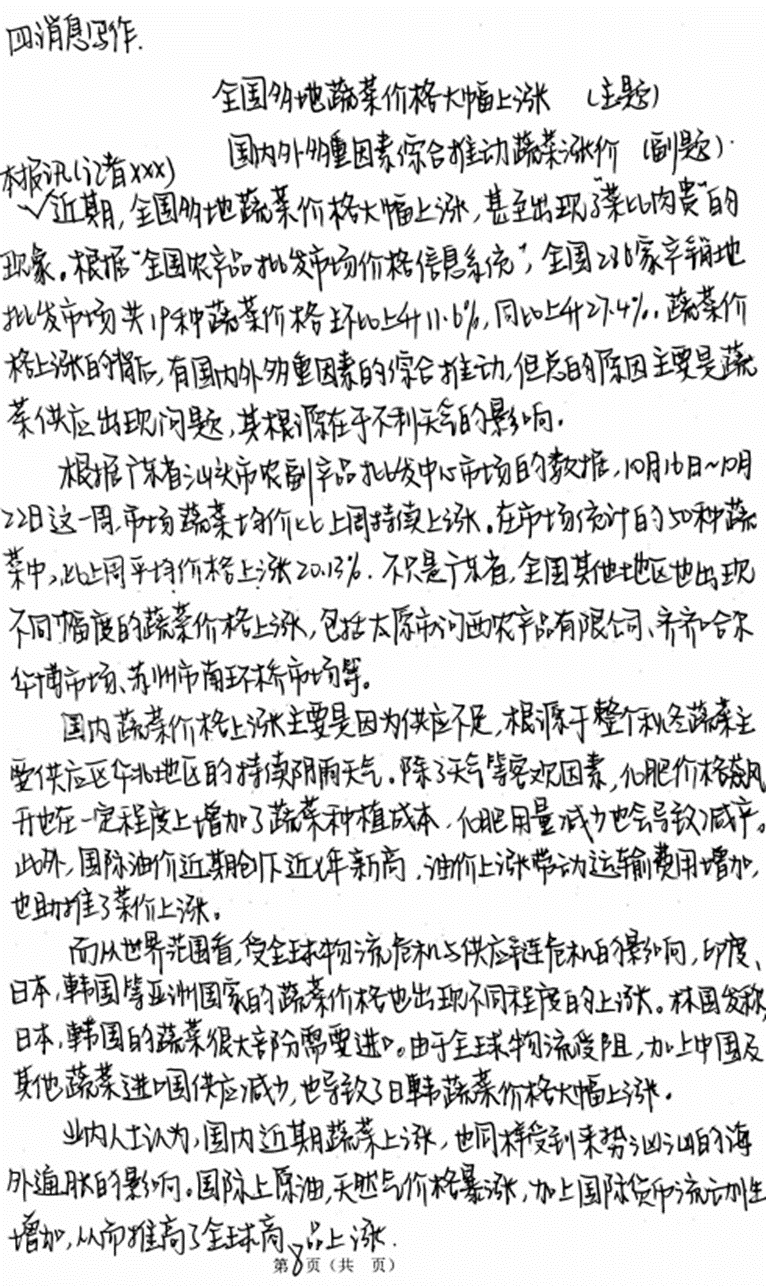 四消息写作.
全国多地蔬菜价格大幅上涨 (主题)
国内外多重因素综合推动蔬菜涨价 (副题)
本报讯(记者xxx)
近期,全国多地蔬菜价格大幅上涨,甚至出现了“菜比肉贵”的
现象。根据“全国农产品批发市场价格信息系统”,全国286家产销地
批发市场共19种蔬菜价格环比上升11.6%,同比上升27.4%。蔬菜价
格上涨的背后,有国内外多重因素的综合推动,但总的原因主要是蔬
菜供应出现问题,其根源在于不利天气的影响。
根据广东省汕头市农副产品批发中心市场的数据,10月16日~10月
22日这一周,市场蔬菜均价比上周持续上涨。在市场统计的50种蔬
菜中,比上周平均价格上涨20.13%.不只是广东省,全国其他地区也出现
不同幅度的蔬菜价格上涨,包括太原市河西农产品有限公司、齐齐哈尔
华博市场、苏州市南环桥市场等。
国内蔬菜价格上涨主要是因为供应不足,根源于整个秋冬蔬菜主
要供应区华北地区的持续阴雨天气。除了天气等客观因素,化肥价格飙
升也在一定程度上增加了蔬菜种植成本,化肥用量减少也会导致减产。
此外,国际油价近期创下近七年新高,油价上涨带动运输费用增加,
也助推了菜价上涨。
而从世界范围看,受全球物流危机与供应链危机的影响,印度、
日本,韩国等亚洲国家的蔬菜价格也出现不同程度的上涨。林国发称,
日本,韩国的蔬菜很大部分需要进口。由于全球物流受阻,加上中国及
其他蔬菜进口国供应减少,也导致了日韩蔬菜价格大幅上涨。
业内人士认为,国内近期蔬菜上涨,也同样受到来势汹汹的海
外通胀的影响。国际上原油,天然气价格暴涨,加上国际货币流动性
增加,从而推高了全球商品上涨.
第8页(共 页)